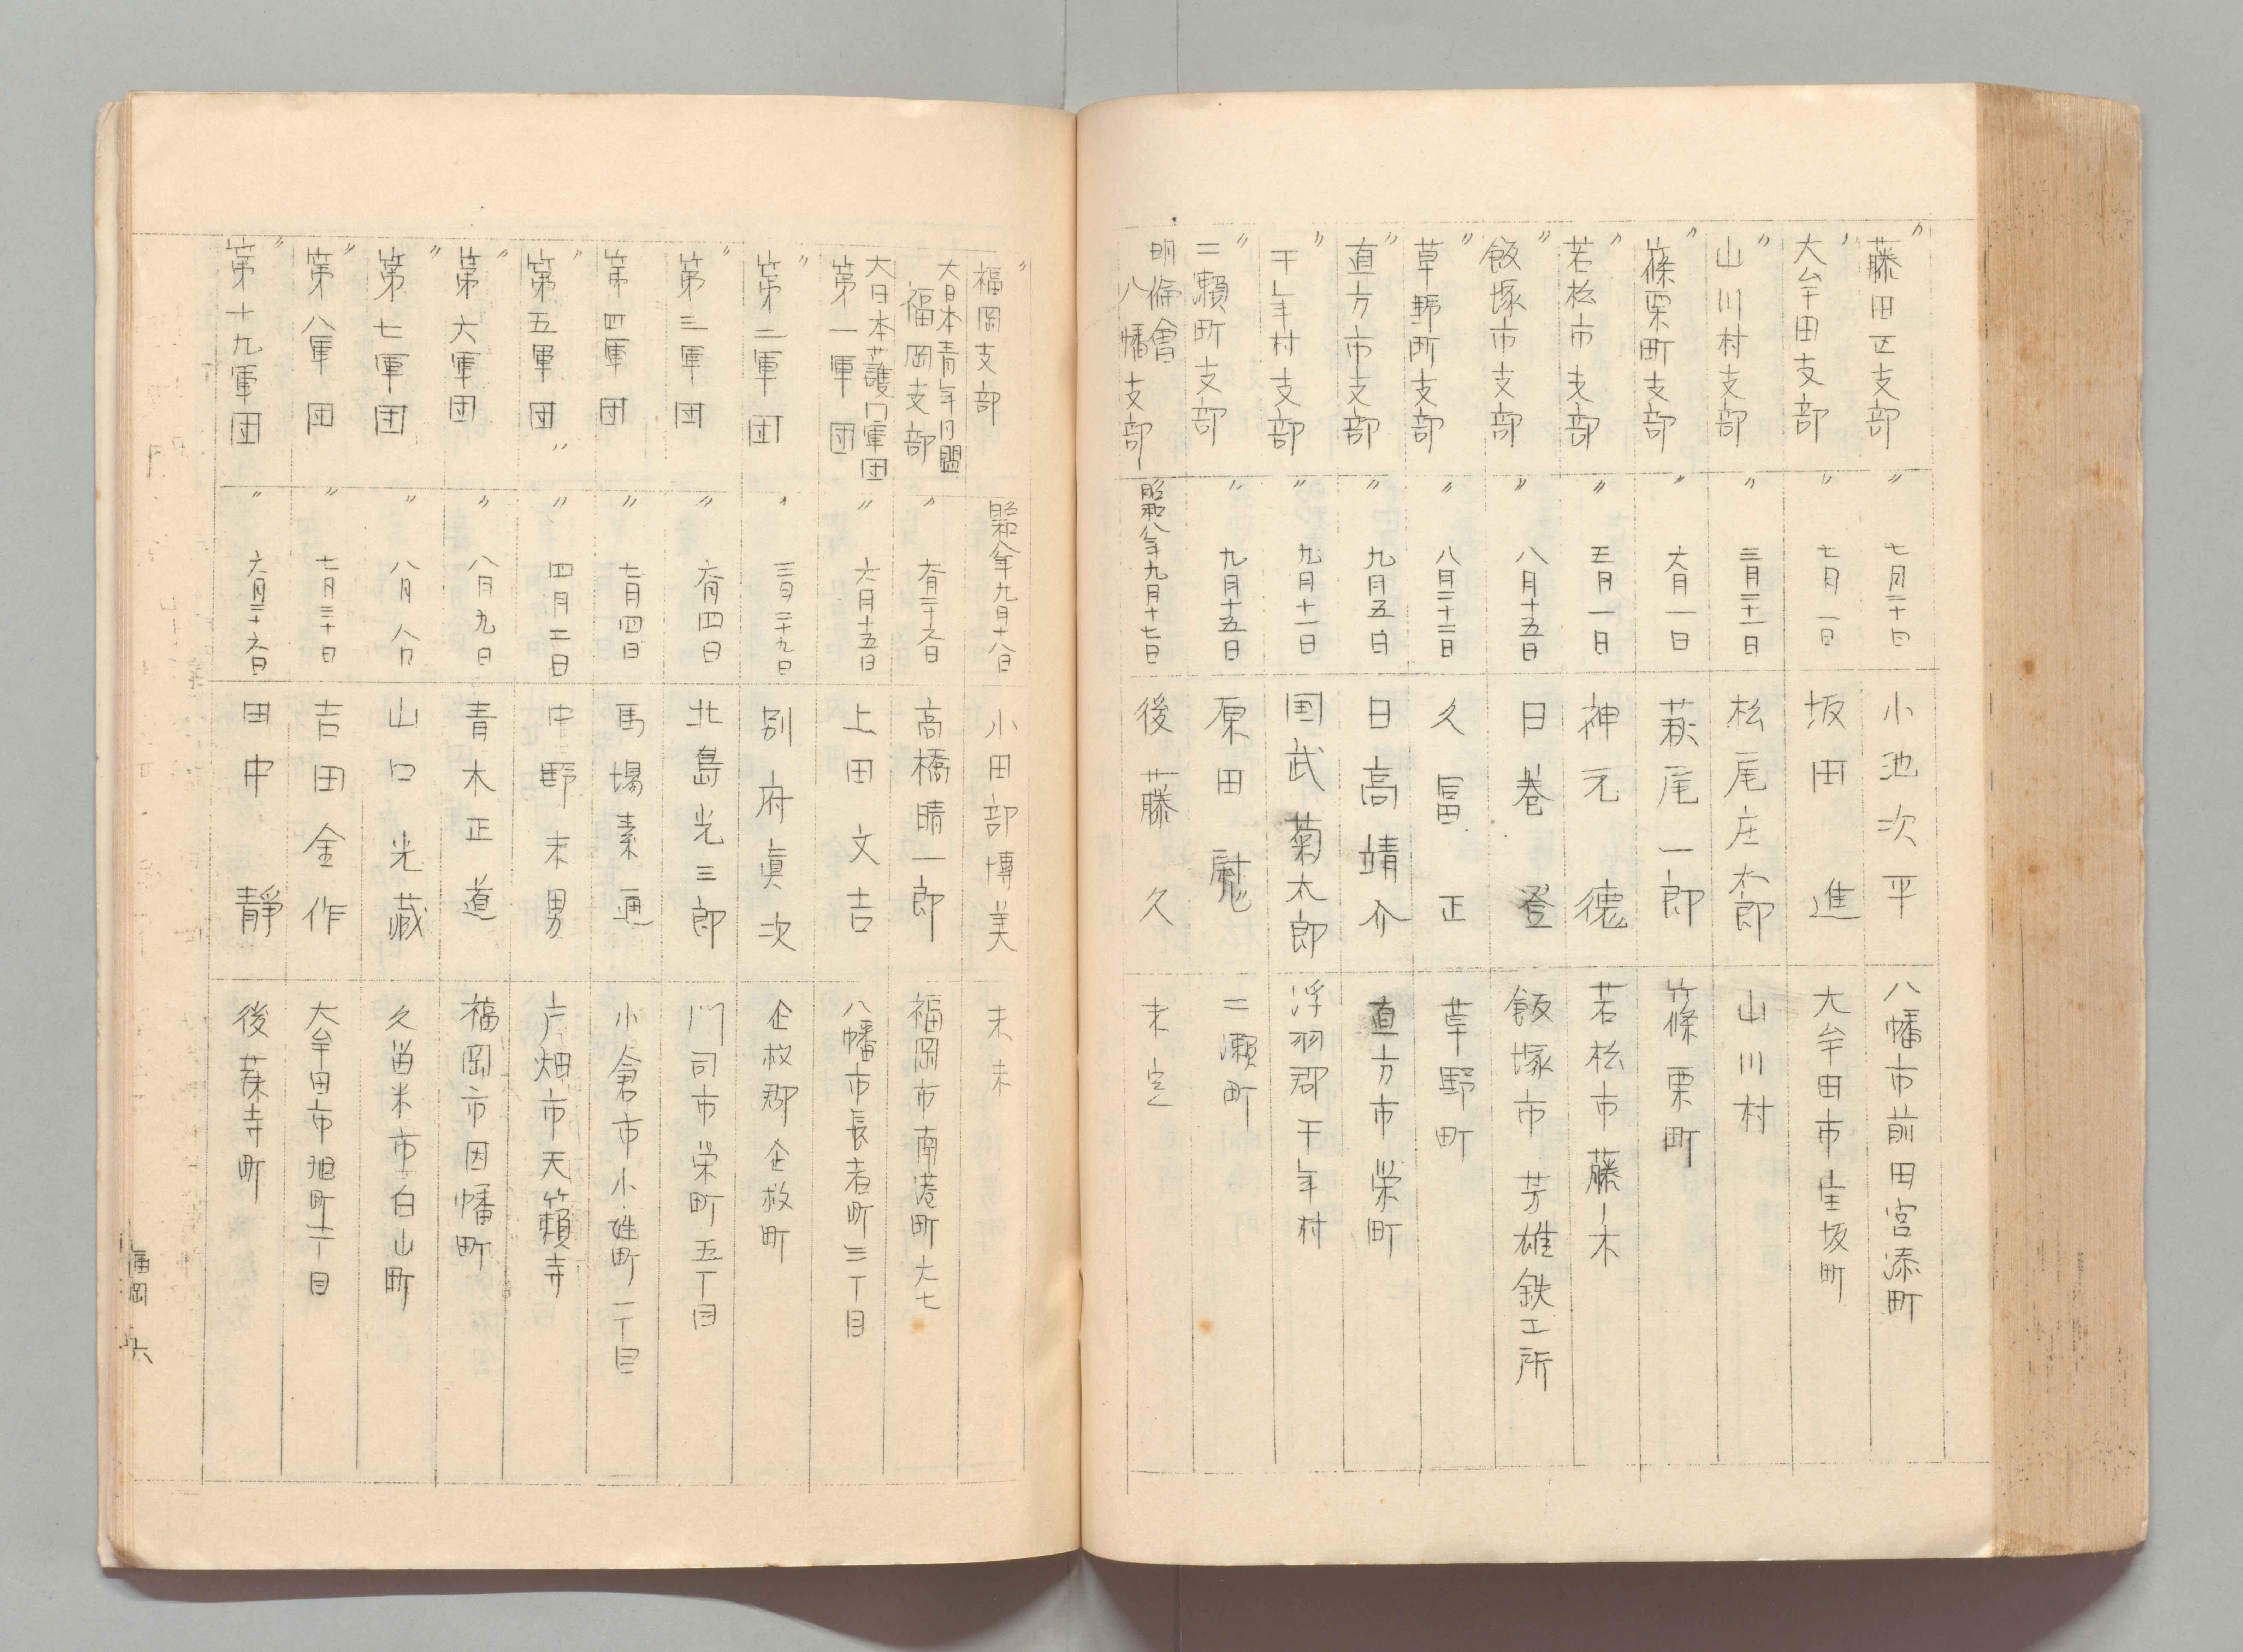 〃藤田区支部 〃 七月二十日 小池次平 八幡市前田宮添町
〃大牟田支部 〃 七月一日 坂田進 大牟田市生坂町
〃山川村支部 〃 三月二十一日 松尾庄太郎 山川村
〃篠栗町支部 〃 六月一日 萩尾一郎 篠栗町
〃若松市支部 〃 五月一日 神元德 若松市藤ノ木
〃飯塚市支部 〃 八月十五日 日巻登 飯塚市芳雄鉄工所
〃草野町支部 〃 八月二十二日 久冨正 草野町
〃直方市支部 〃 九月五日 日高靖介 直方市栄町
〃千年村支部 〃 九月十一日 国武菊太郎 浮羽郡千年村
〃二瀬町支部 〃 九月十五日 原田 二瀬町
明倫會八幡支部 昭和八年九月十七日 後藤久 未定
〃福岡支部 昭和八年九月十八日 小田部博美 未未
大日本青年同盟福岡支部 〃 六月二十六日 高橋晴一郎 福岡市南港町六七
大日本護国軍団第一軍団 〃 六月十五日 上田文吉 八幡市長者町三丁目
〃第二軍団 〃 三月二十九日 別府眞次 企救郡企救町
〃第三軍団 〃 六月四日 北島光三郎 門司市栄町五丁目
第四軍団 〃 七月四日 馬場素通 小倉市小姓町一丁目
〃第五軍団 〃 四月二日 中野末男 戸畑市天籟寺
〃第六軍団 〃 八月九日 青木正道 福岡市因幡町
〃第七軍団 〃 八月八日 山口光藏 久留米市白山町
〃第八軍団 〃 七月三十日 吉田金作 大牟田市旭町二丁目
〃第十九軍団 〃 六月二十六日 田中靜 後蔴寺町
福岡 六